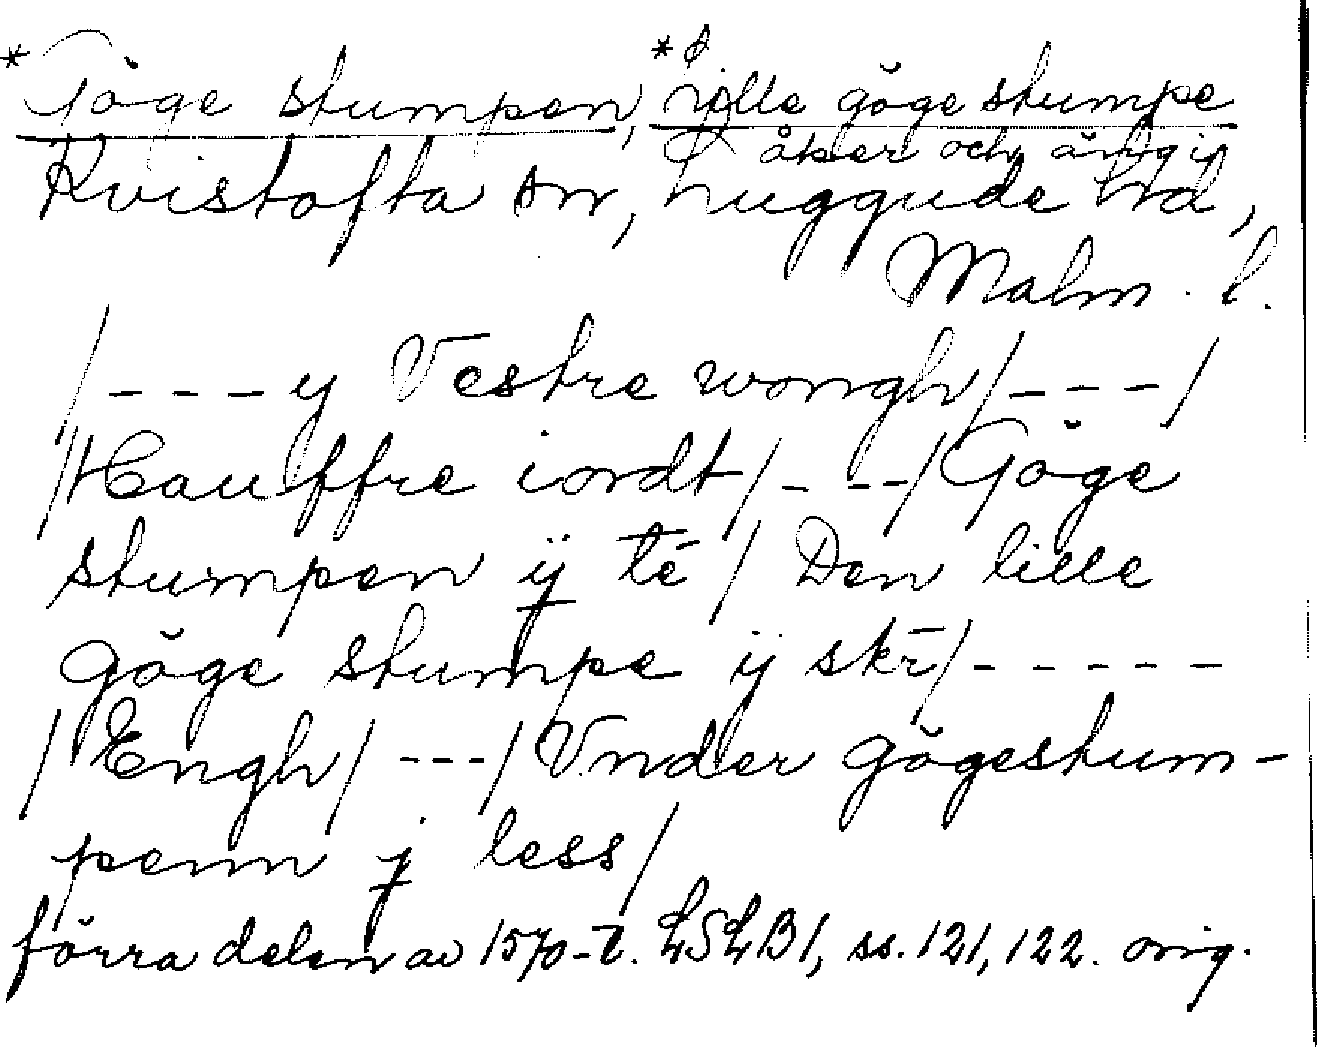 * Gŏge stumpen, * lille gŏge stumpe
åker och äng i
Kvistofta sn, Luggude hd,
Malm. l.
/ - - - y Vestre wongh / - - - /
/ Hauffre iordt / - - - / Gŏge
stumpen ÿ té / Den lille
gŏge stumpe ÿ skr̄ / - - - - -
/ Engh / - - - / Vnder gŏgestum-
penn j less /
förra delen av 1570-t. LSLB1, ss. 121, 122. orig.